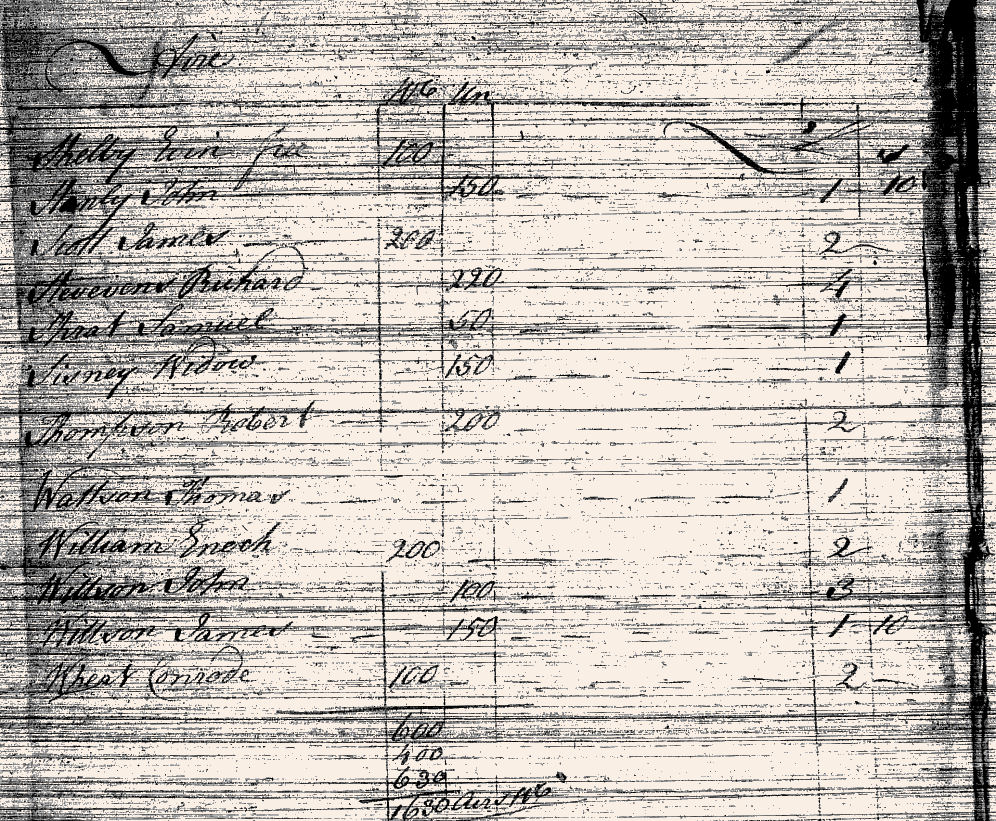 Wd Un
Shelby Evin 100 2
Stanly John 150 1 10
Scott James 200 2
Stevevens Richard 220 4
Samuel 50 1
Sisney Widow 150 1
Thompson Robert 200 2
Wattson Thomas 1
William Enoch 200 2
Willson John 100 3
Willson James 150 1 10
Wheat Conrode 100 2
600
400
630
1630 Acrs